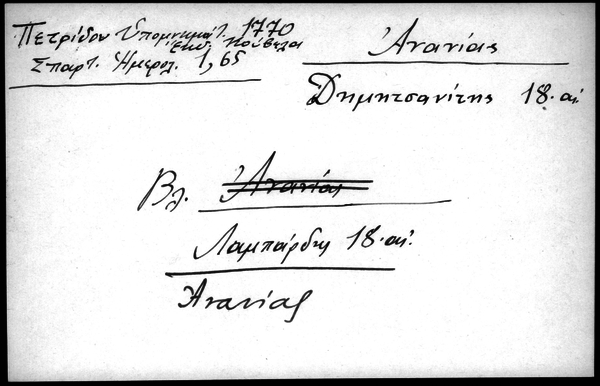 Πετρίδου Ὑπομνημάτ. 1770
ἐκδ. Κούβελα
Σπαρτ. Ἡμερολ. 1, 65
Ἀνανίας
Δημητσανίτης 18. αἰ.
Βλ. Ἀνανίας
Λαμπάρδης 18. αἰ.
Ἀνανίας